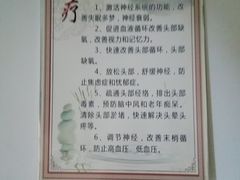 疗
1、激活神经系统的功能，改
善失眠多梦，神经衰弱。
2、促进血液循环改善头部缺
氧，改善视力和记忆力。
3、快速改善头部循环，头部
缺氧。
4、放松头部，舒缓神经，防
止焦虑症和忧郁症。
5、疏通头部经络，排出头部
毒素，预防脑中风和老年痴呆，
清除头部淤堵，快速解决头晕头
疼等。
6、调节神经，改善末梢循
环，防止高血压、低血压。